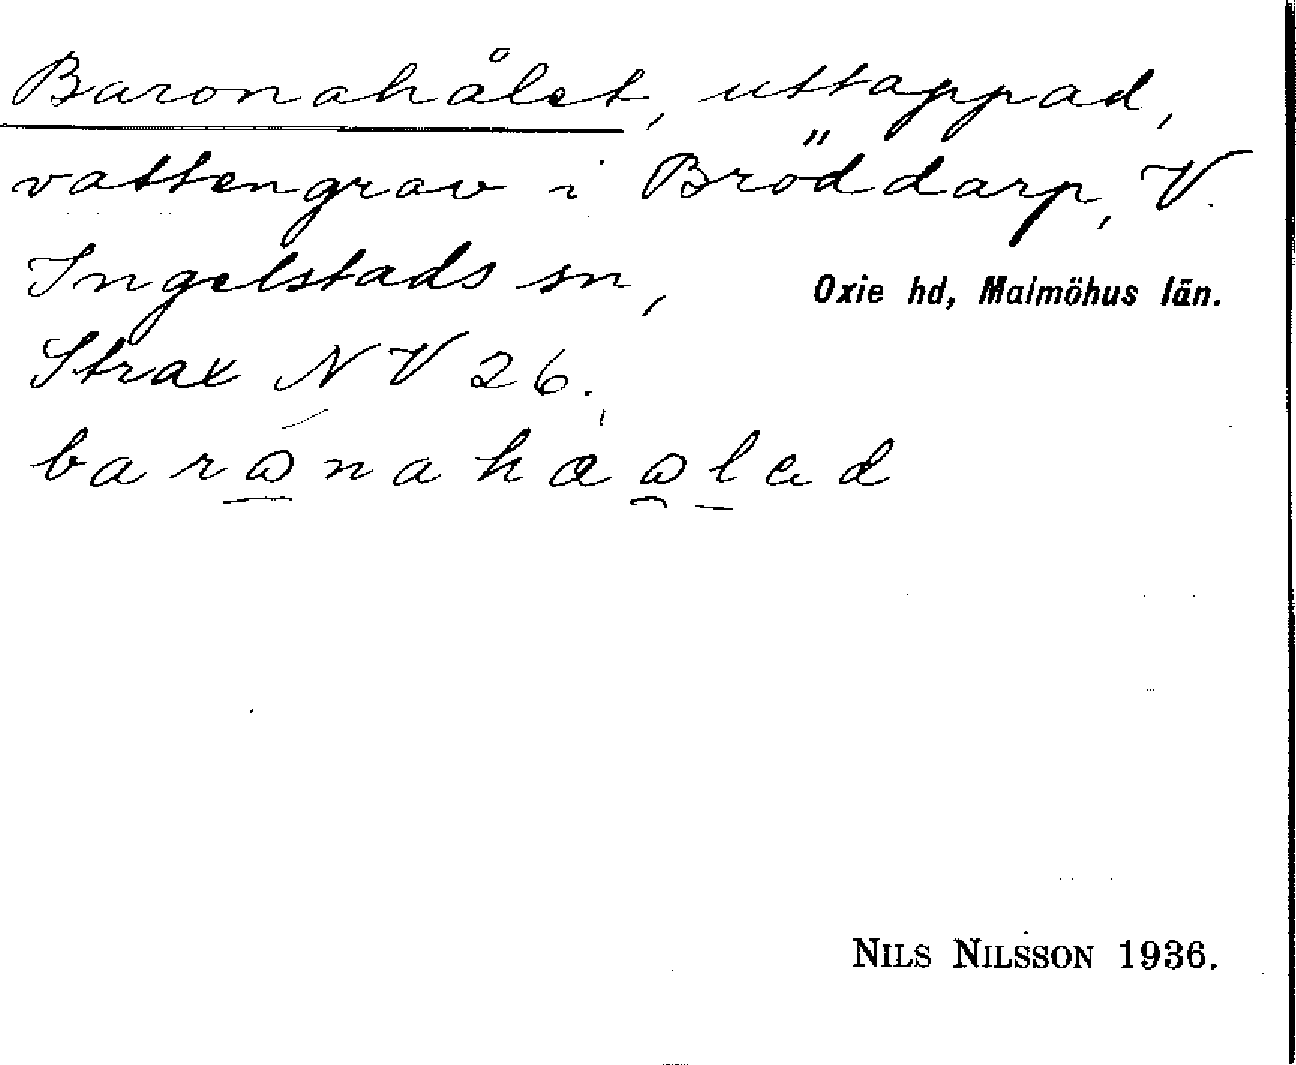 Baronahålet, uttappad,
vattengrav i Bröddarp, V.
Ingelstads sn, Oxie hd, Malmöhus län.
Strax NV 26.
NILS NILSSON 1936.